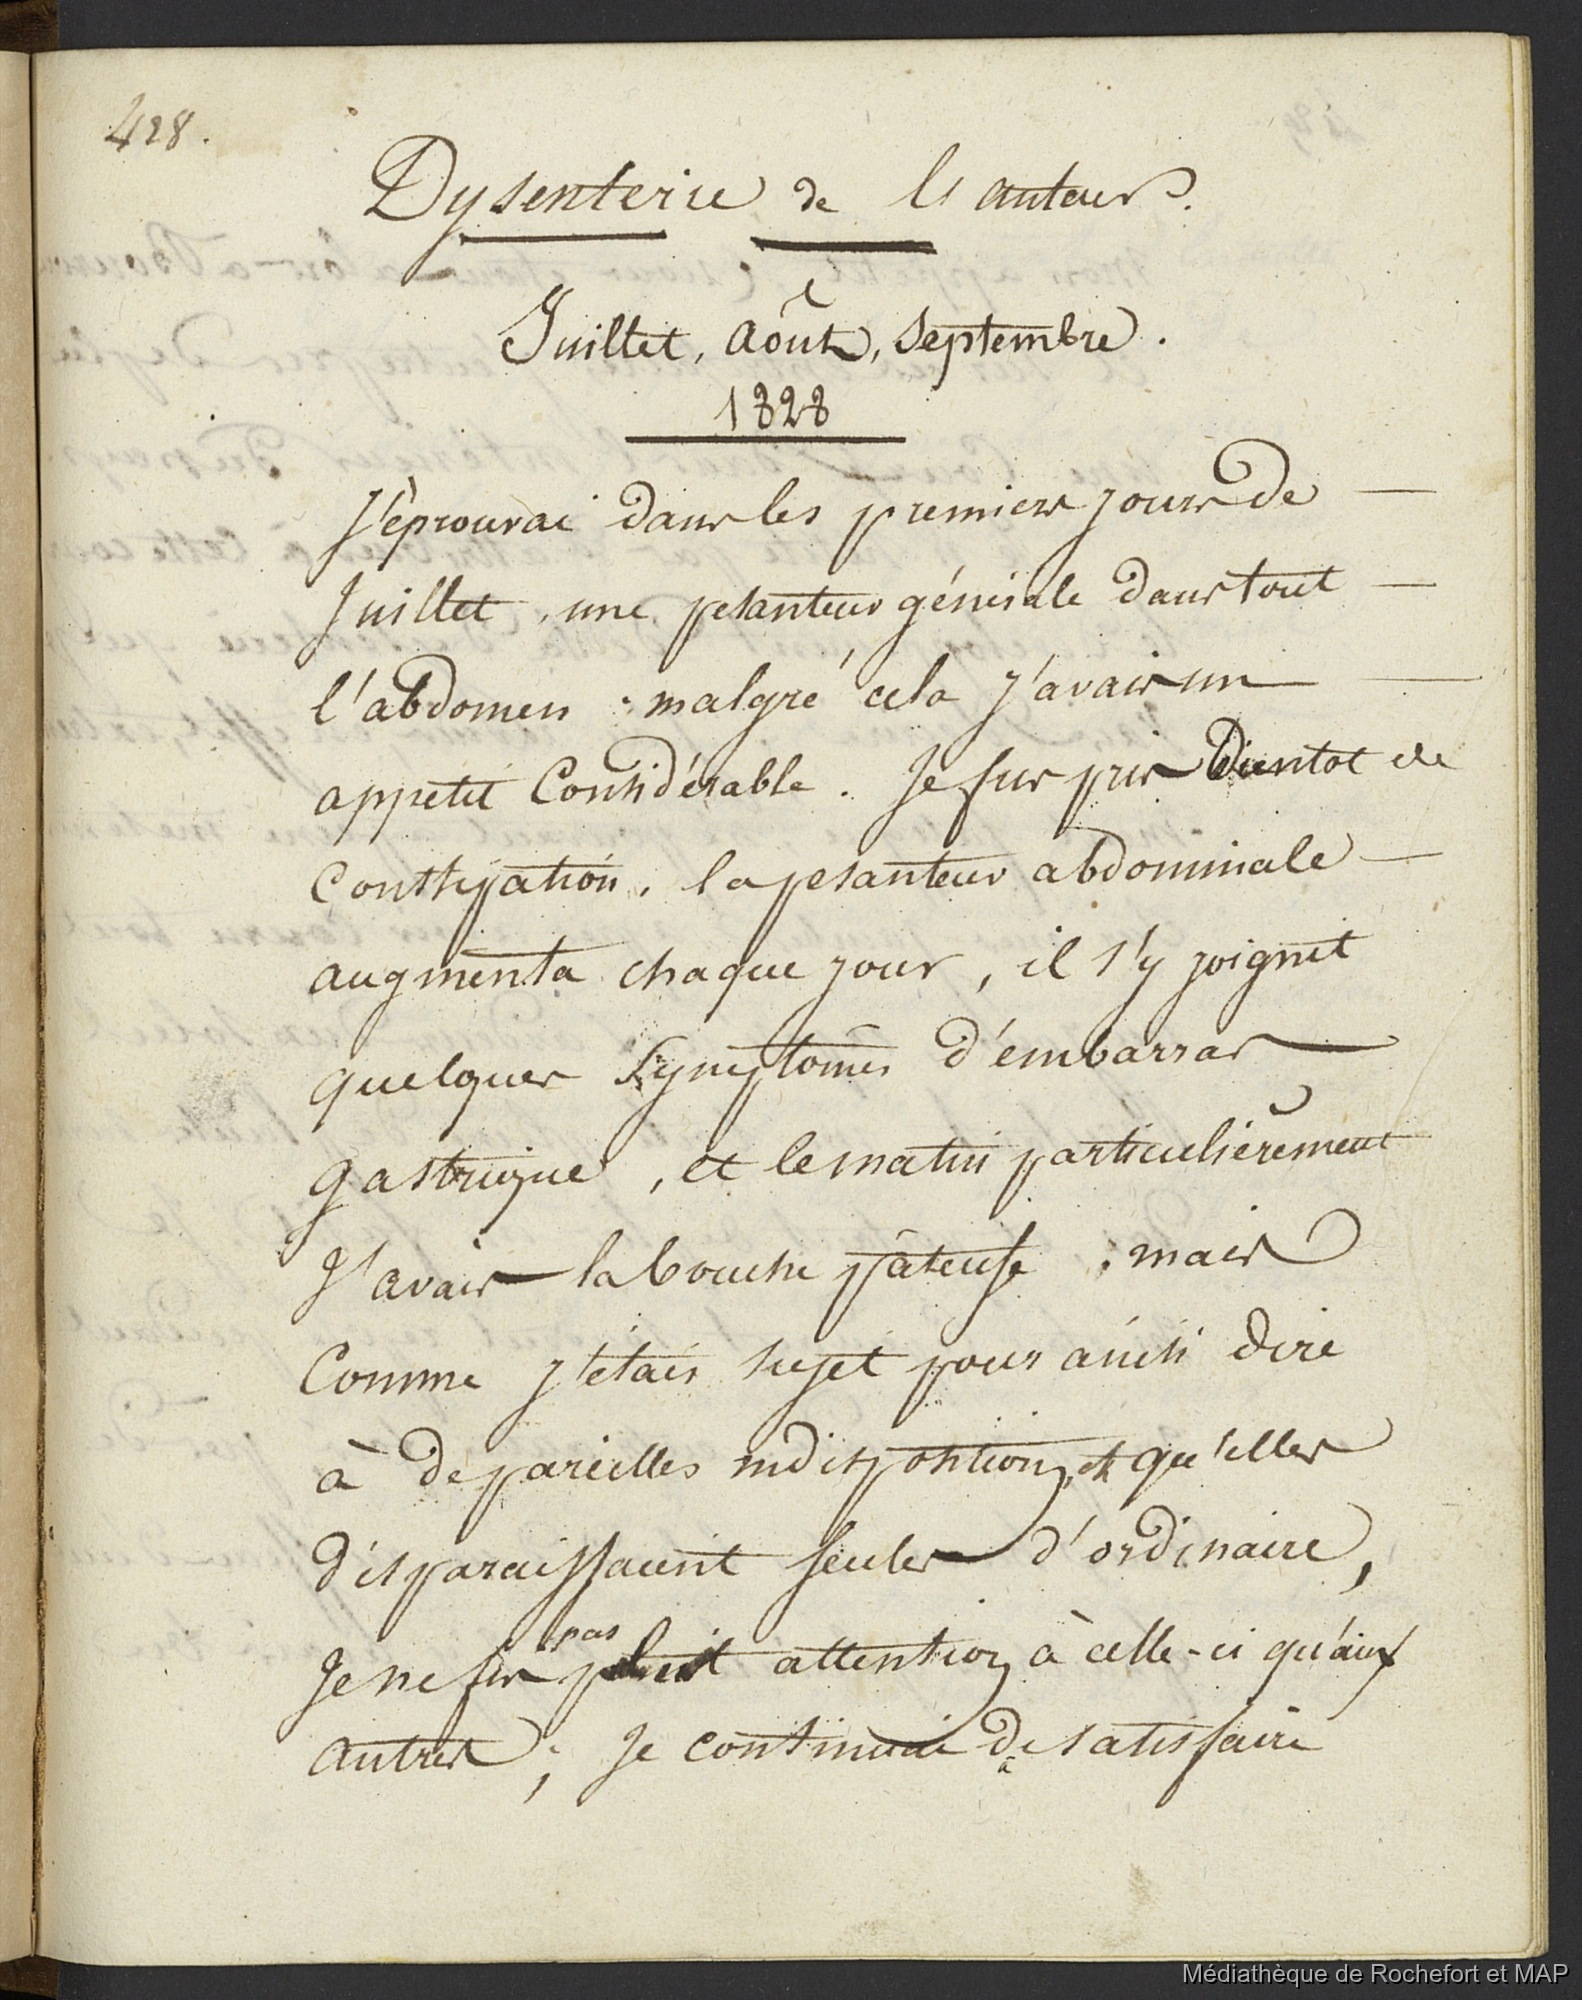 428.
Dysenterie de l'auteur.
Juillet, Août, Septembre.
1828
J'éprouvai dans les premiers jours de
Juillet, une pesanteur générale dans tout
l'abdomen. malgré cela j'avais un
appetit Considérable. Je fus pris bientot de
Constipation. la pesanteur abdominale
augmenta chaque jour, il s'y joignit
quelques Symptomes d'embarras
gastrique, et le matin particulièrement
J'avais la bouche pâteuse. mais
Comme j'étais sujet pour ainsi dire
à de pareilles indispositions, et qu'elles
disparaissaient seules d'ordinaire,
Je ne fis pas plus attention à celle-ci qu'aux
autres; Je continuai de satisfaire
Médiathèque de Rochefort et MAP